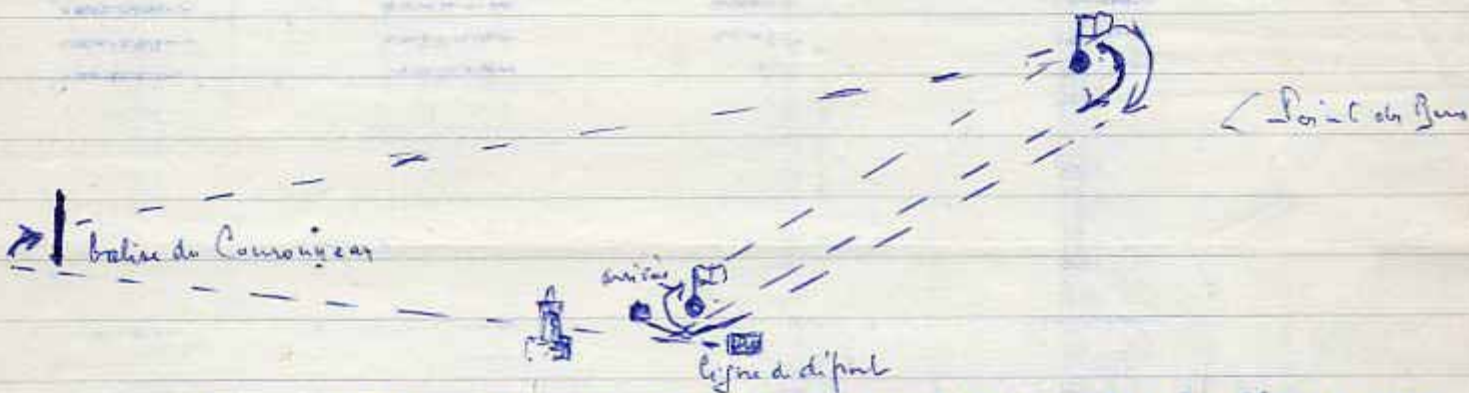 Point des Bers
balise du Couronneau
arrivée
ligne de départ